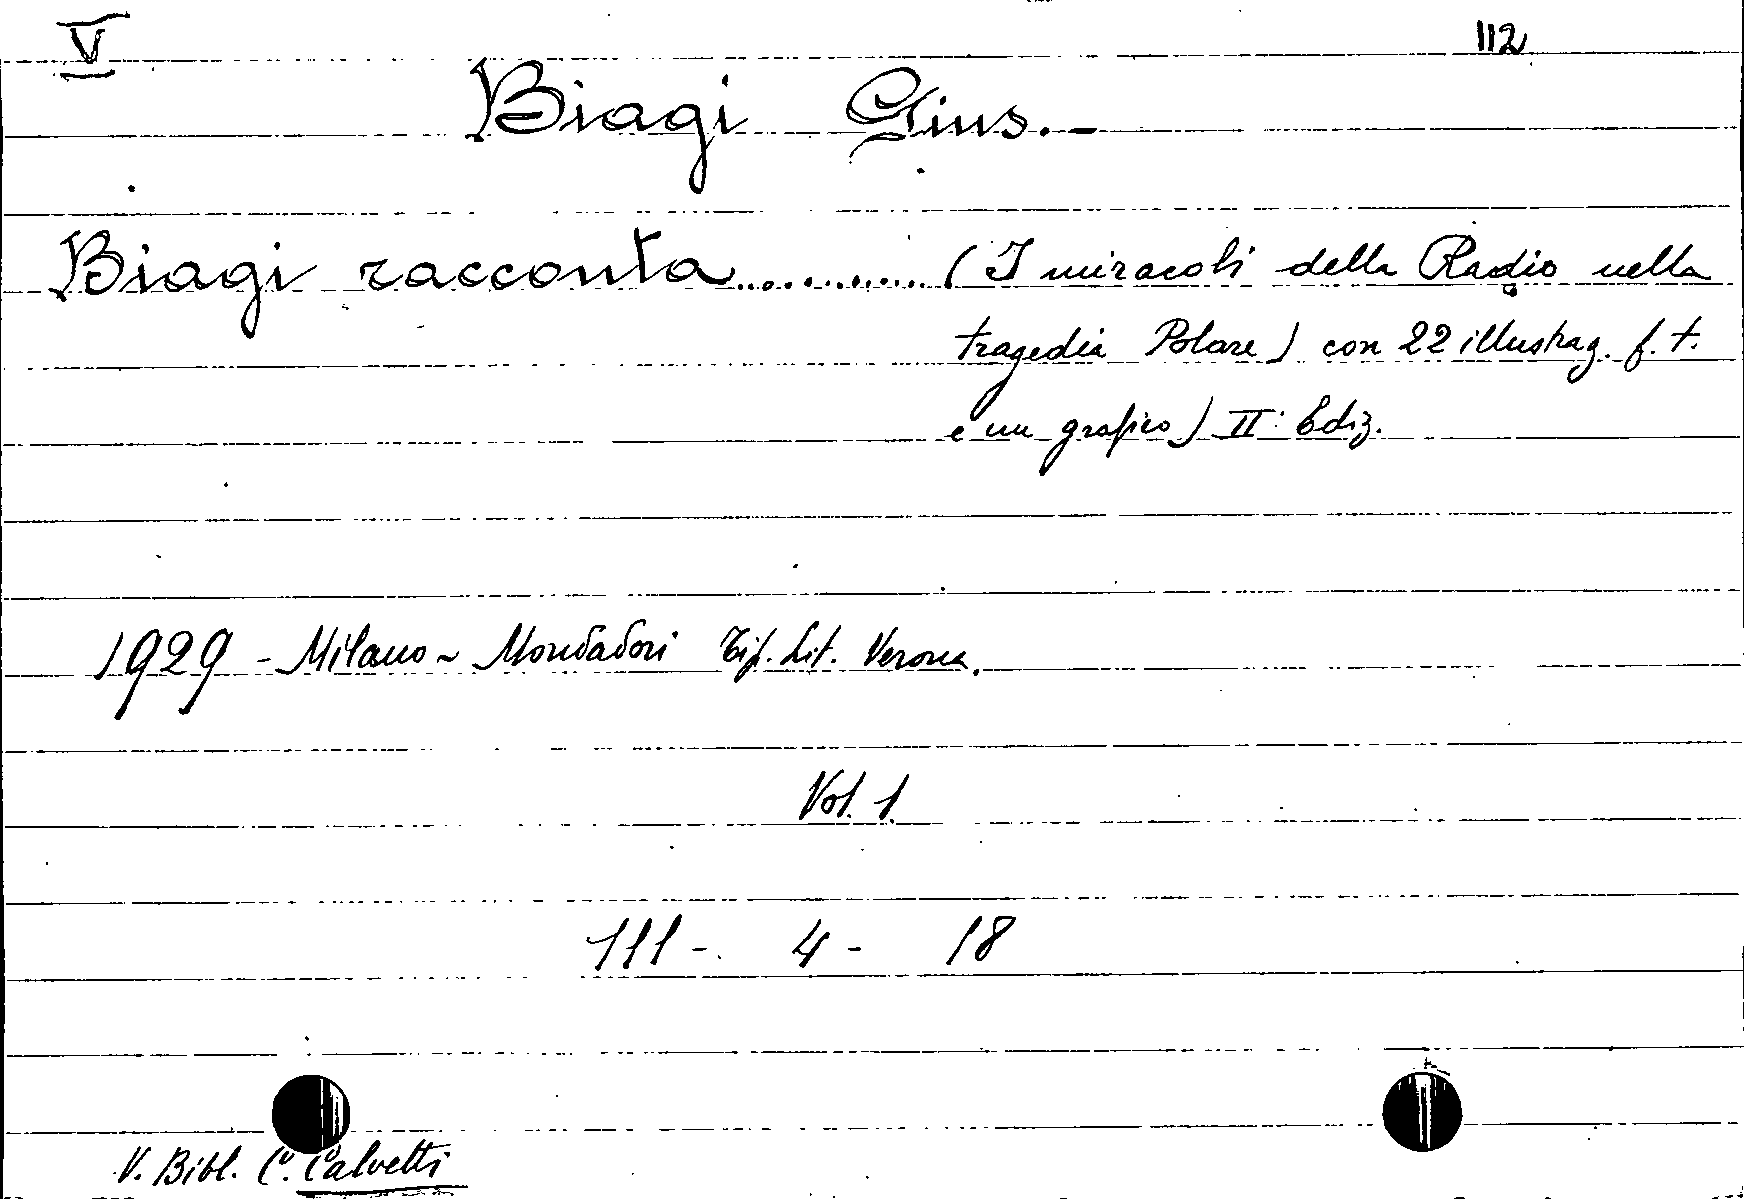 V 112
Biagi Gius.-
Biagi racconta............ (I miracoli della Radio nella
tragedia Polare) con 22 illustraz. f. t.
e un grafico) II: Ediz.
1929 - Milano - Mondadori Tip. Lit. Verona.
Vol. 1.
111 - 4 - 18
V. Bibl. C. Calvetti